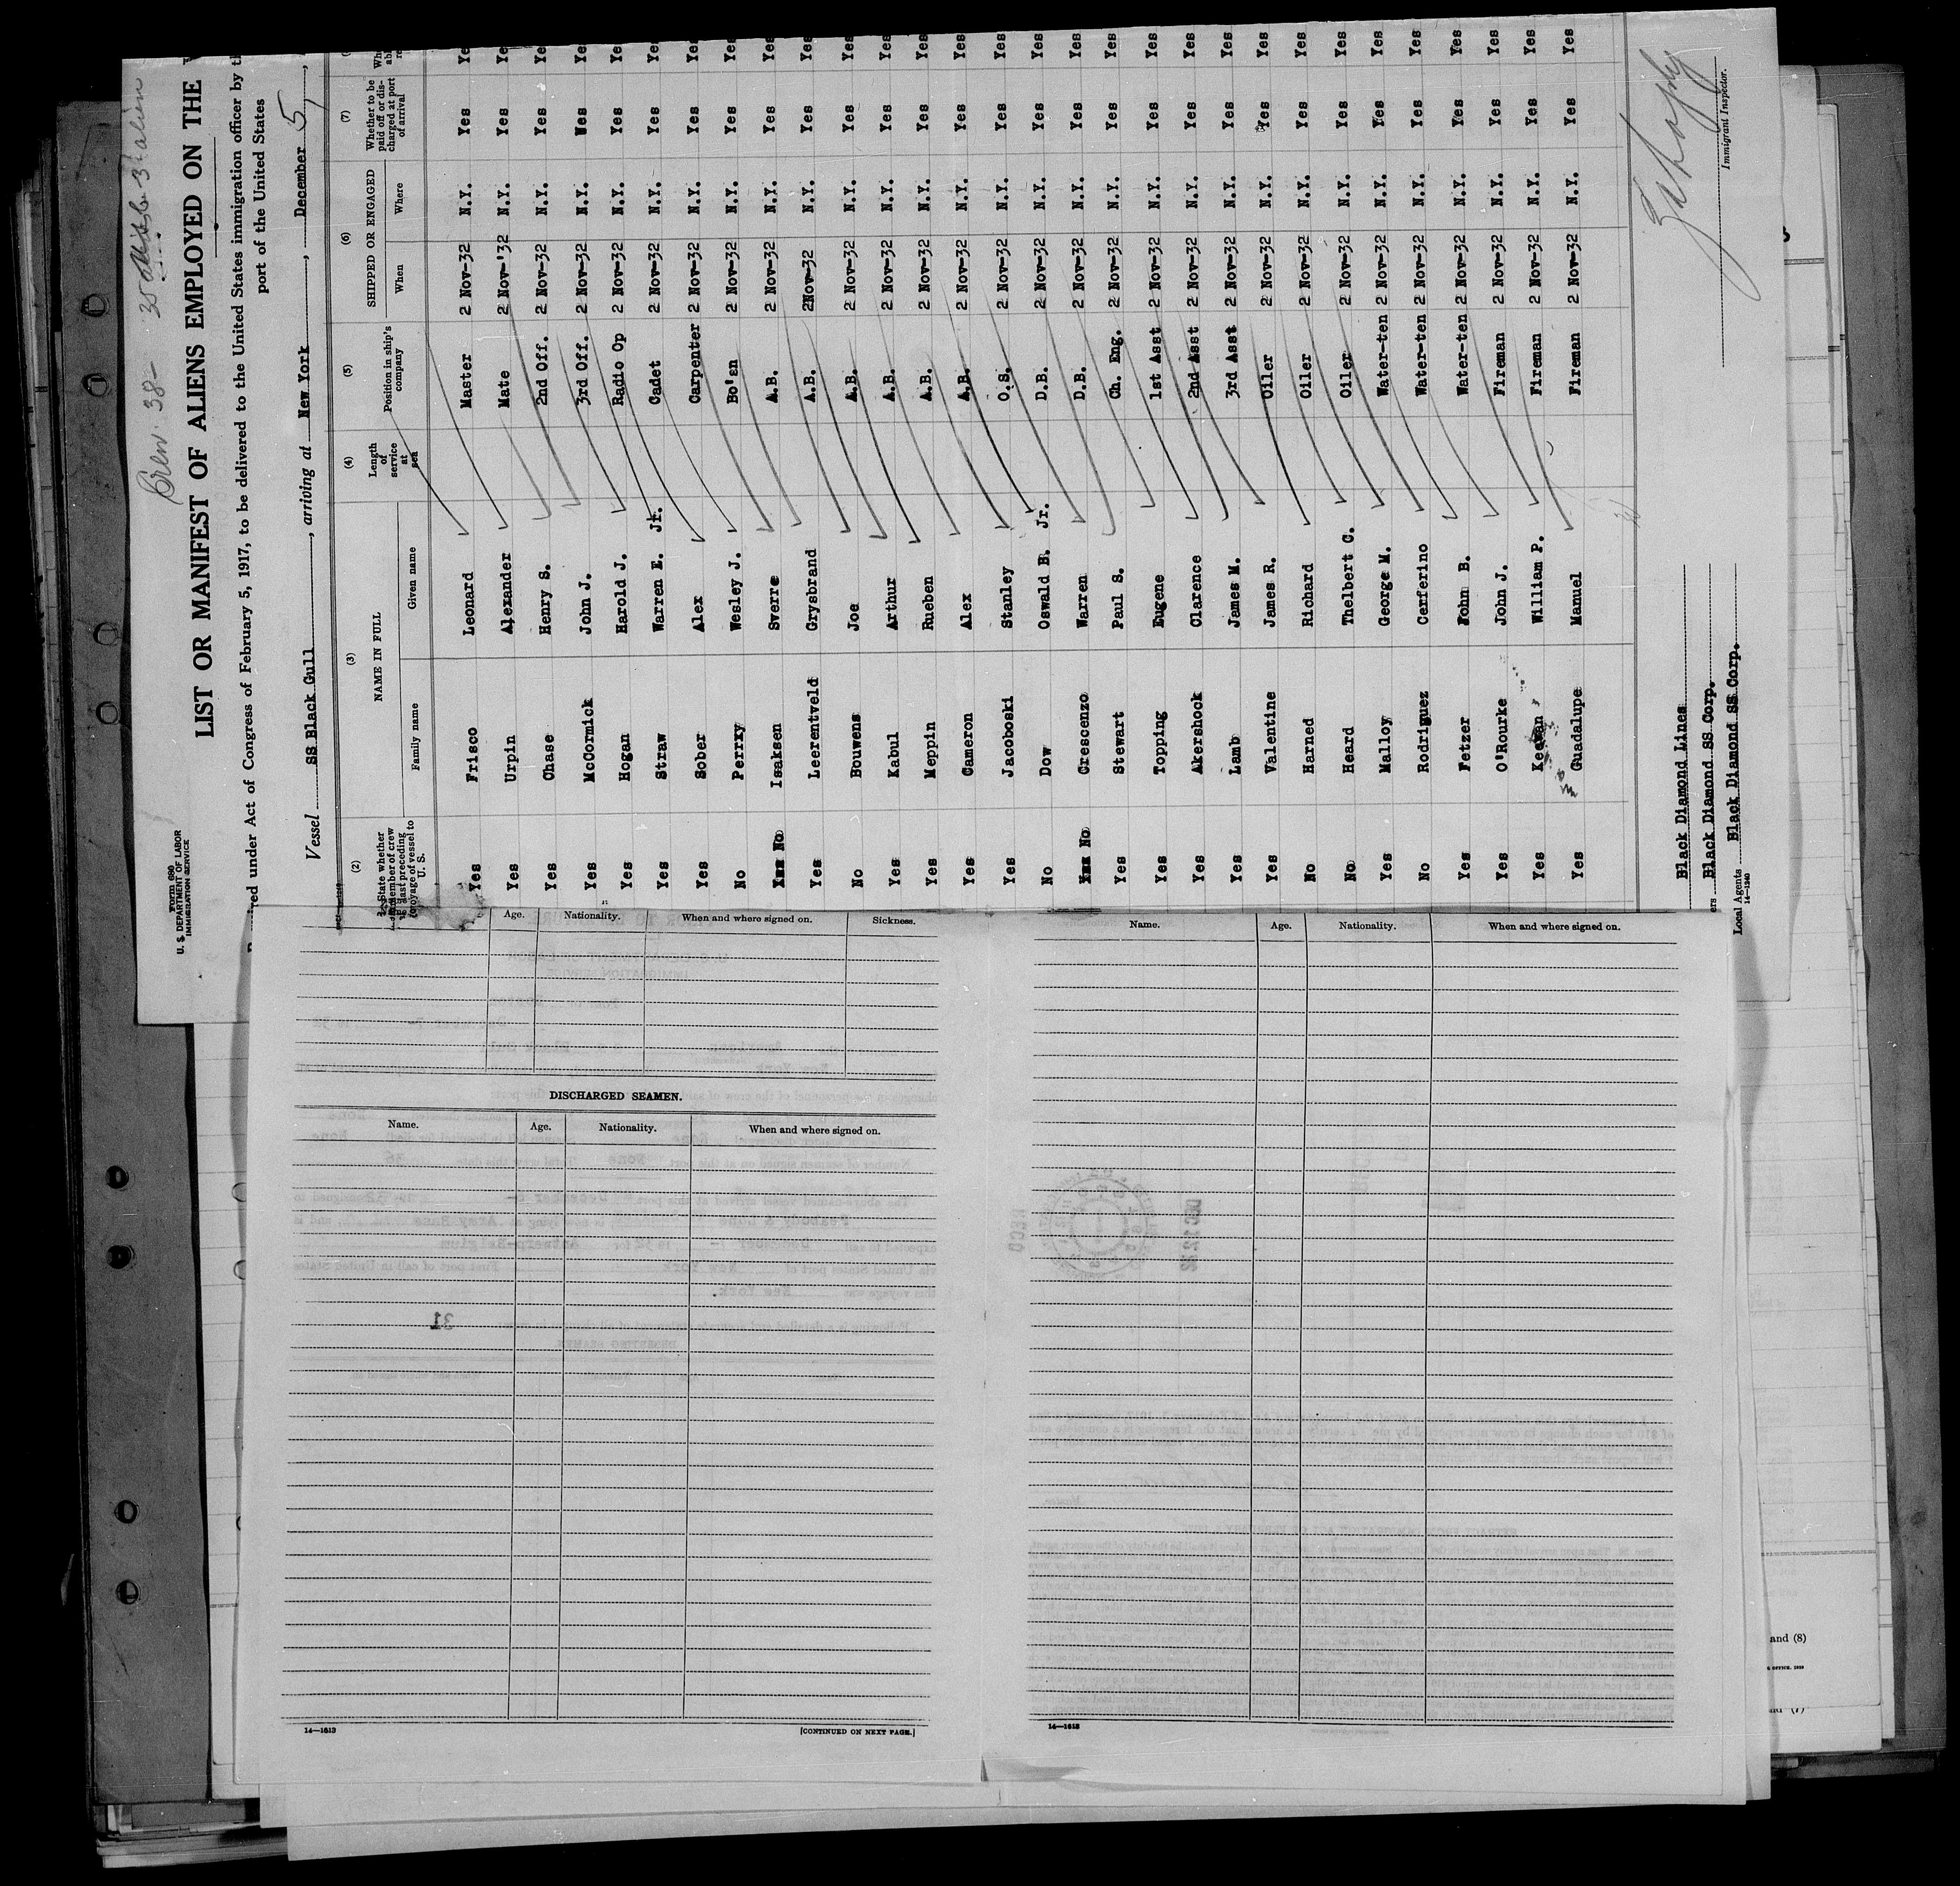 Form 680
U. S. DEPARTMENT OF LABOR
IMMIGRATION SERVICE
Crew. 38-
LIST OR MANIFEST OF ALIENS EMPLOYED ON THE
under Act of Congress of February 5, 1917, to be delivered to the United States immigration officer by
port of the United States
Vessel SS Black Gull, arriving at New York, December 5,
(2) (3) (4) (5) (6) (7)
State whether member of crew last preceding voyage of vessel to U. S.
NAME IN FULL
Family name Given name
Length of service at sea
Position in ship's company
SHIPPED OR ENGAGED
When Where
Whether to be paid off or discharged at port of arrival
Yes Frisco Leonard Master 2 Nov-32 N.Y. Yes
Yes Urpin Alexander Mate 2 Nov-'32 N.Y. Yes Yes
Yes Chase Henry S. 2nd Off. 2 Nov-32 N.Y. Yes
Yes McCormick John J. 3rd Off. 2 Nov-32 N.Y. Yes
Yes Hogan Harold J. Radio Op 2 Nov-32 N.Y. Yes
Yes Straw Warren E. Jr. Cadet 2 Nov-32 N.Y. Yes Yes
Yes Sober Alex Carpenter 2 Nov-32 N.Y. Yes Yes
No Perrxy Wesley J. Bo'sn 2 Nov-32 N.Y. Yes Yes
No Isaksen Sverre A.B. 2 Nov-32 N.Y. Yes Yes
Yes Leerentveld Grysbrand A.B. 2Nov-32 N.Y. Yes Yes
No Bouwens Joe A.B. 2 Nov-32 N.Y. Yes Yes
Yes Kabul Arthur A.B. 2 Nov-32 N.Y. Yes Yes
Yes Meppin Rueben A.B. 2 Nov-32 N.Y. Yes Yes
Yes Cameron Alex A.B. 2 Nov-32 N.Y. Yes Yes
Yes Jacoboski Stanley O.S. 2 Nov-32 N.Y. Yes Yes
No Dow Oswald B. Jr. D.B. 2 Nov-32 N.Y. Yes Yes
No Crescenzo Warren D.B. 2 Nov-32 N.Y. Yes Yes
Yes Stewart Paul S. Ch. Eng. 2 Nov-32 N.Y. Yes Yes
Yes Topping Eugene 1st Asst 2 Nov-32 N.Y. Yes Yes
Yes Akershock Clarence 2nd Asst 2 Nov-32 N.Y. Yes Yes
Yes Lamb James M. 3rd Asst 2 Nov-32 N.Y. Yes Yes
Yes Valentine James R. Oiler 2 Nov-32 N.Y. Yes Yes
No Harned Richard Oiler 2 Nov-32 N.Y. Yes Yes
No Heard Thelbert C. Oiler 2 Nov-32 N.Y. Yes Yes
Yes Malloy George M. Water-ten 2 Nov-32 N.Y. Yes Yes
No Rodriguez Cerferino Water-ten 2 Nov-32 N.Y. Yes Yes
Yes Fetzer John B. Water-ten 2 Nov-32 N.Y. Yes Yes
Yes O'Rourke John J. Fireman 2 Nov-32 N.Y. Yes Yes
Yes Keevan William P. Fireman 2 Nov-32 N.Y. Yes Yes
Yes Guadalupe Manuel Fireman 2 Nov-32 N.Y. Yes Yes
Black Diamond Lines
Black Diamond SS Corp.
Local Agents Black Diamond SS Corp.
14-1240
Immigrant Inspector.
Age. Nationality. When and where signed on. Sickness.
DISCHARGED SEAMEN.
Name. Age. Nationality. When and where signed on.
14—1613 [CONTINUED ON NEXT PAGE.]
Name. Age. Nationality. When and where signed on.
14—1613
and (8)